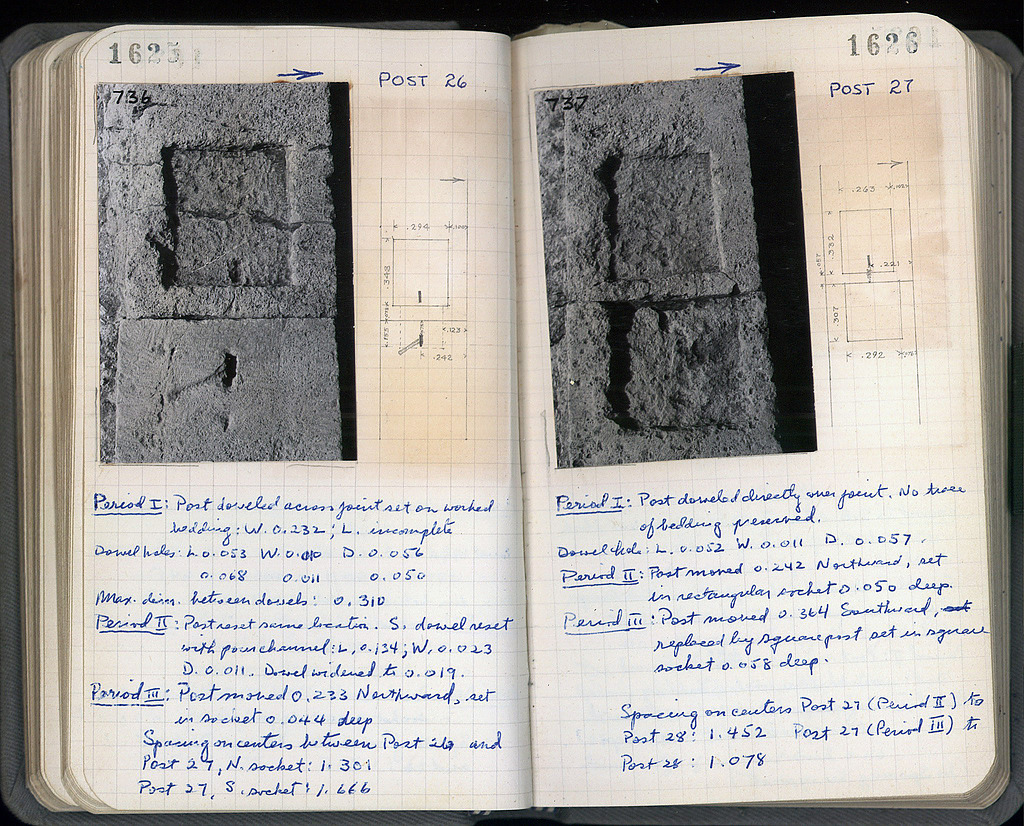 1625
POST 26
736
.294
.348
.123
.242
Period I: Post doweled across joint set on worked
bedding: W. 0.232; L. incomplete
Dowel holes: L 0.053 W. 0.010 D. 0.056
0.068 0.011 0.050
Max. dim. between dowels: 0.310
Period II: Post reset same location. S. dowel reset
with pour channel: L. 0.134; W. 0.023
D. 0.011. Dowel widened to 0.019.
Period III: Post moved 0.233 Northward, set
in socket 0.044 deep
Spacing on centers between Post 26 and
Post 27, N. socket: 1.301
Post 27, S. socket: 1.666
1626
POST 27
737
.263
.332
.057
.221
.307
.292
Period I: Post doweled directly over joint. No trace
of bedding preserved.
Dowel hole: L. 0.052 W. 0.011 D. 0.057.
Period II: Post moved 0.242 Northward, set
in rectangular socket 0.050 deep.
Period III: Post moved 0.364 Southward,
replaced by square post set in square
socket 0.058 deep.
Spacing on centers Post 27 (Period II) to
Post 28: 1.452 Post 27 (Period III) to
Post 28: 1.078